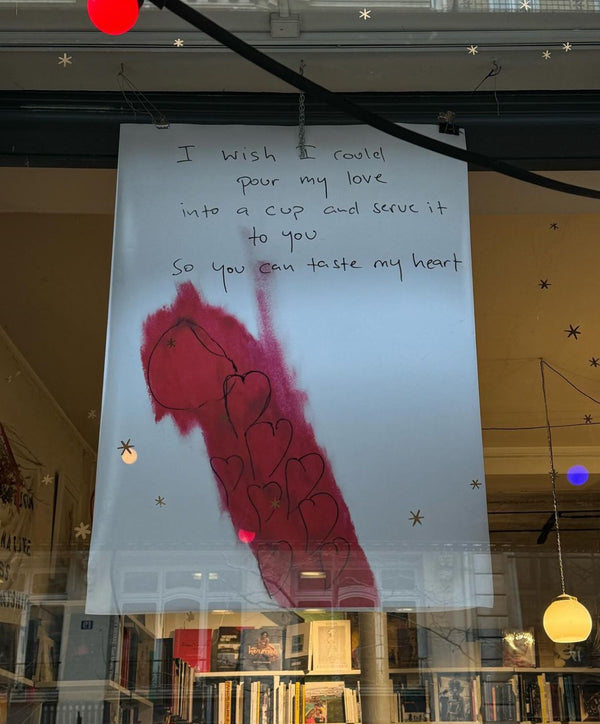 I wish I could
pour my love
into a cup and serve it
to you
So you can taste my heart